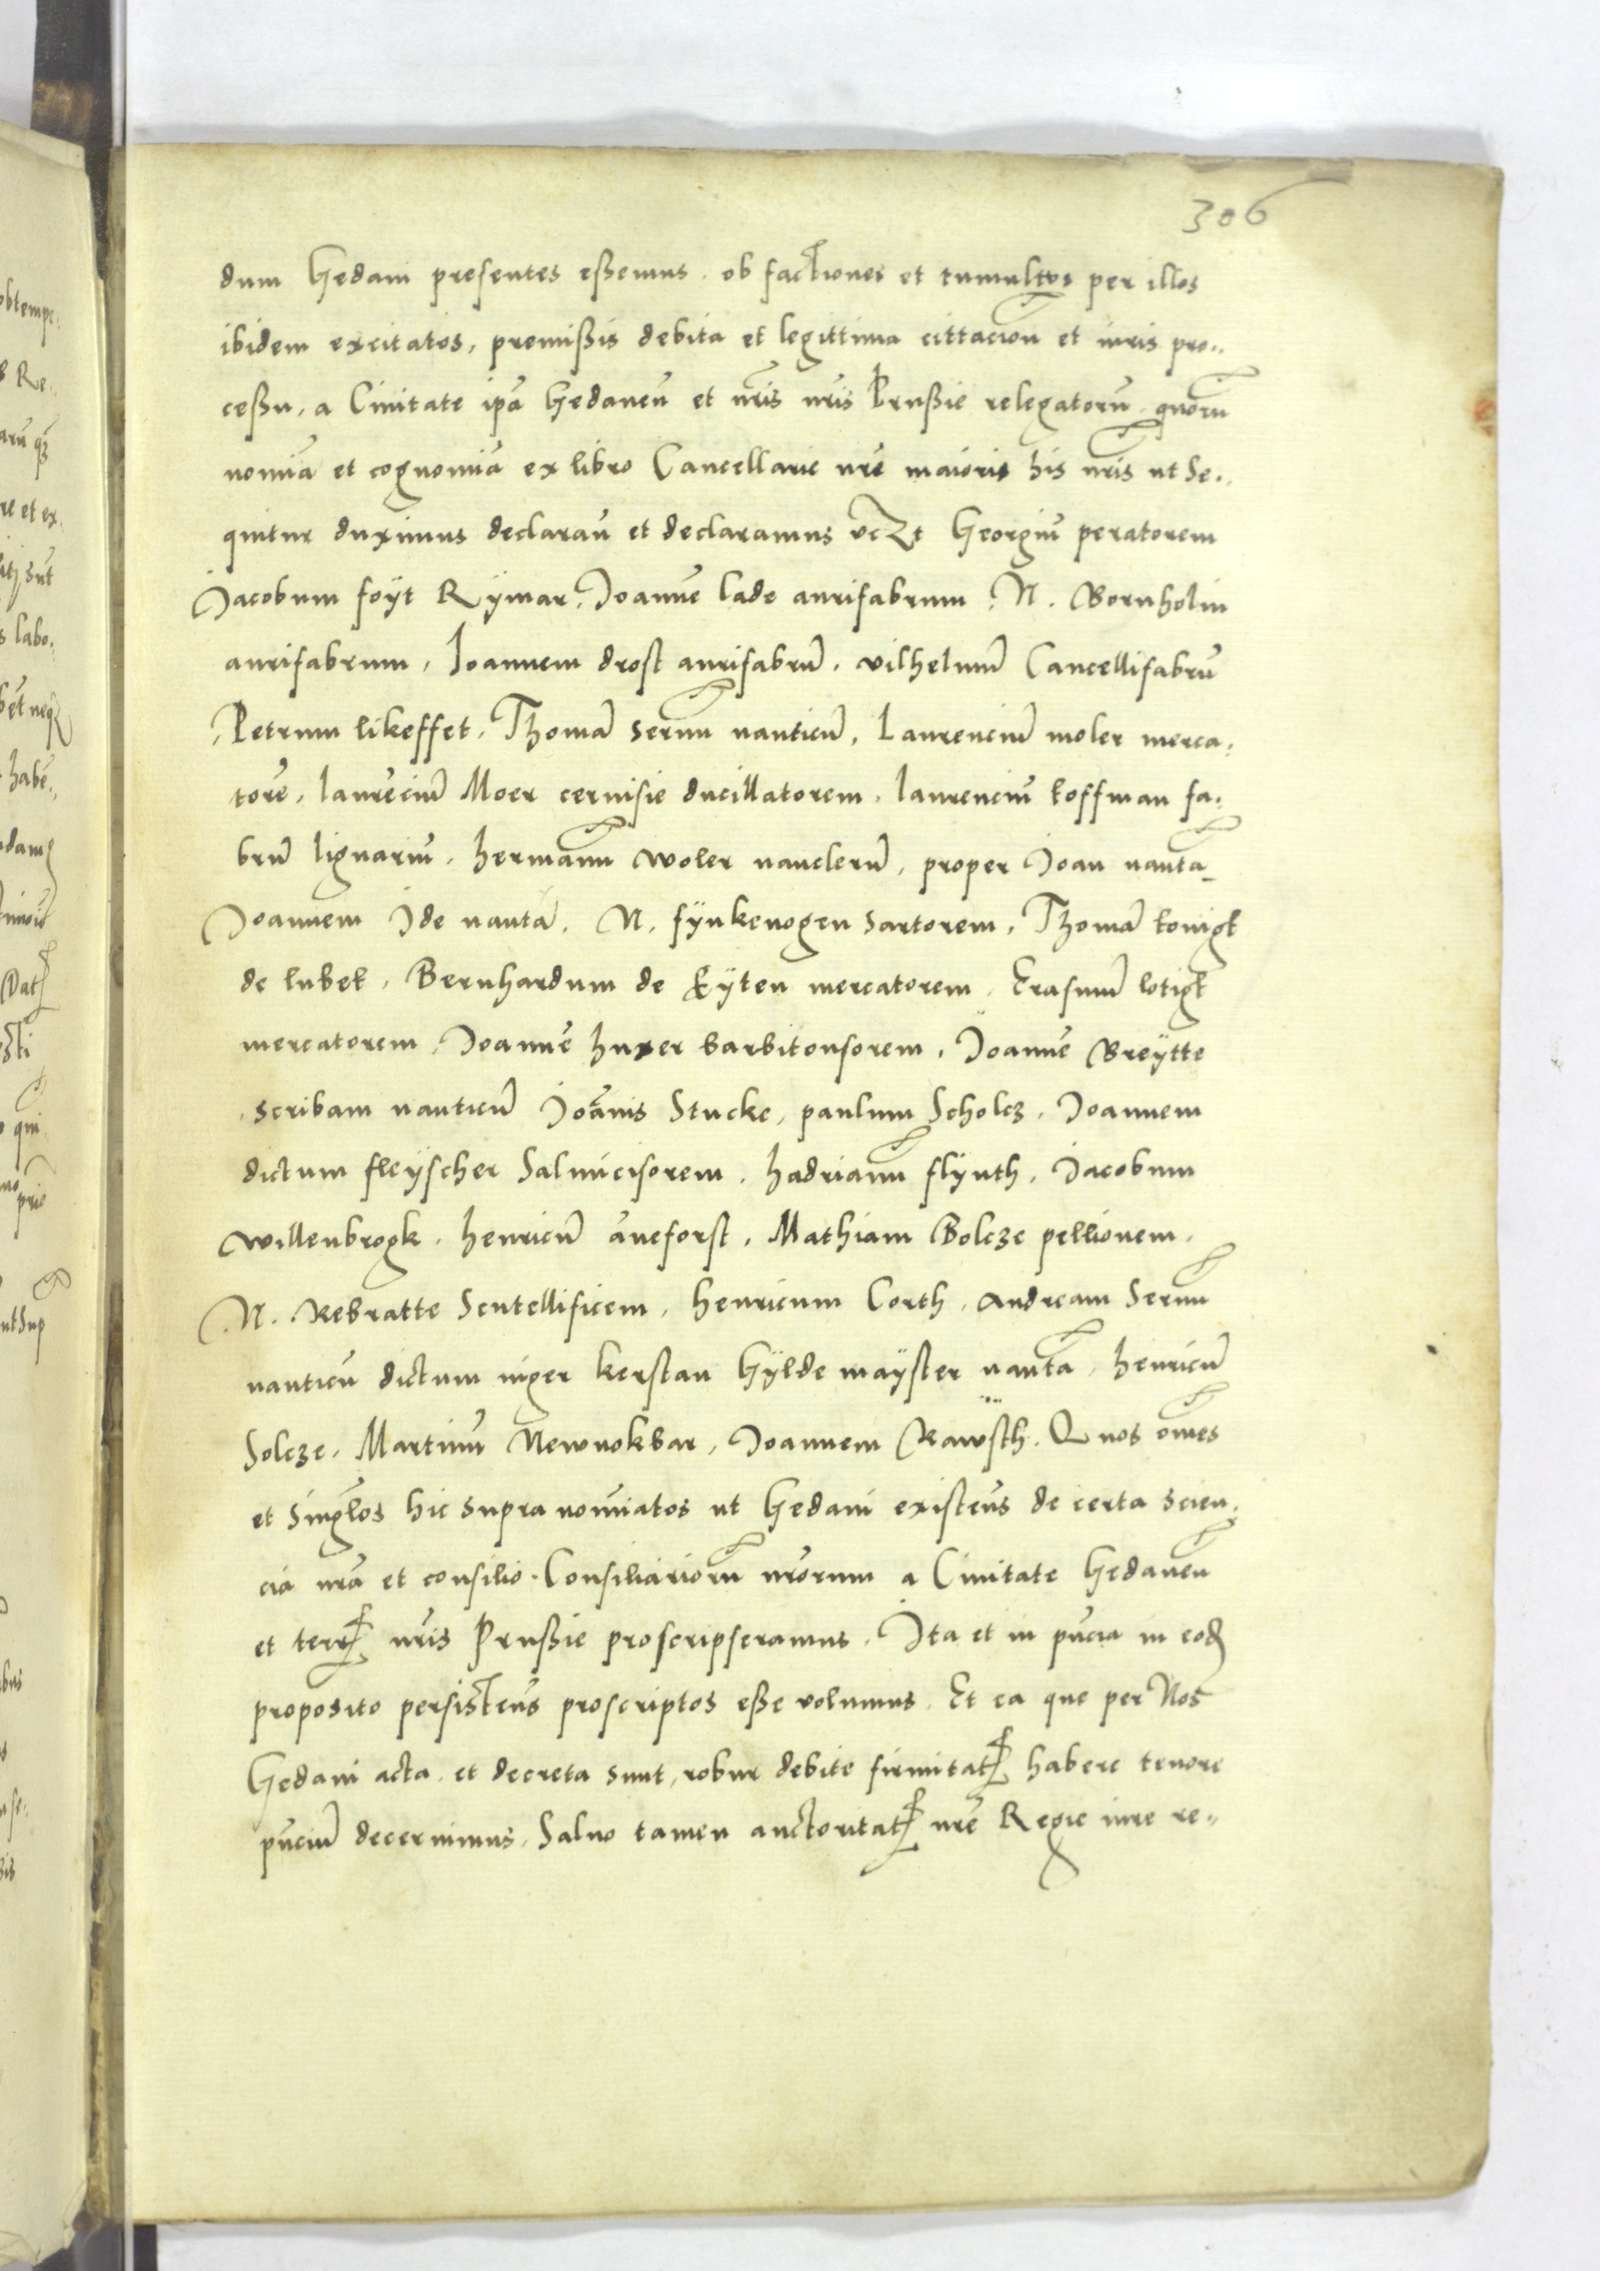 306
dum Gedani presentes essemus. ob factiones et tumultus per illos
ibidem excitatos, premissis debita et legittima cittacion et iuris pro..
cessu, a Civitate ipa Gedanen et nris Prussie relegatoru. quoru
nomia et cognomia ex libro Cancellarie nre maioris his nris ut se..
quitur duximus declarau et declaramus Georgiu peratorem
Jacobum foÿt Rÿmar. Joanne lade aurifabrum. N. Bornholm
aurifabrum, Joannem drost aurifabru. vilhelmu Cancellifabru
Petrum likeffet. Thoma seruu nauticu. Laurenciu moler merca.
tore. laureciu Moer ceruisie ducillatorem. laurenciu koffman fa.
bru lignariu. hermanu woler naucleru. proper Joan nauta
Joannem Ide nauta. N. fÿnkenogen sartorem. Thoma konigk
de lubek. Bernhardum de Eÿten mercatorem. Erasmu lotigk
mercatorem. Joanne huxer barbitonsorem. Joanne Breÿtte
scribam nauticu Joanis Stucke, paulum Scholcz. Joannem
dictum fleÿscher Salmicisorem. hadrianu flÿnth. Jacobum
willenbrogk. henricu aneforst. Mathiam Bolcze pellionem.
N. Rebratte Scutellificem. henricum Corth. Andream seruu
nauticu dictum niger kerstan Gÿlde maÿster nauta. henricu
Solcze. Martinu Newnokbar, Joannem Rawsch. Quos omes
et singlos hic supra nomiatos ut Gedani existens de certa scien.
cia nra et consilio. Consiliarioru nrorum a Civitate Gedanen
et terr nris Prussie proscripseramus. Ita et in pncia in eod
proposito persistens proscriptos esse volumus. Et ea que per Nos
Gedani acta et decreta sunt, robur debite firmitat habere tenore
pnciu decernimus. Salvo tamen auctoritat nre Regie iure re..